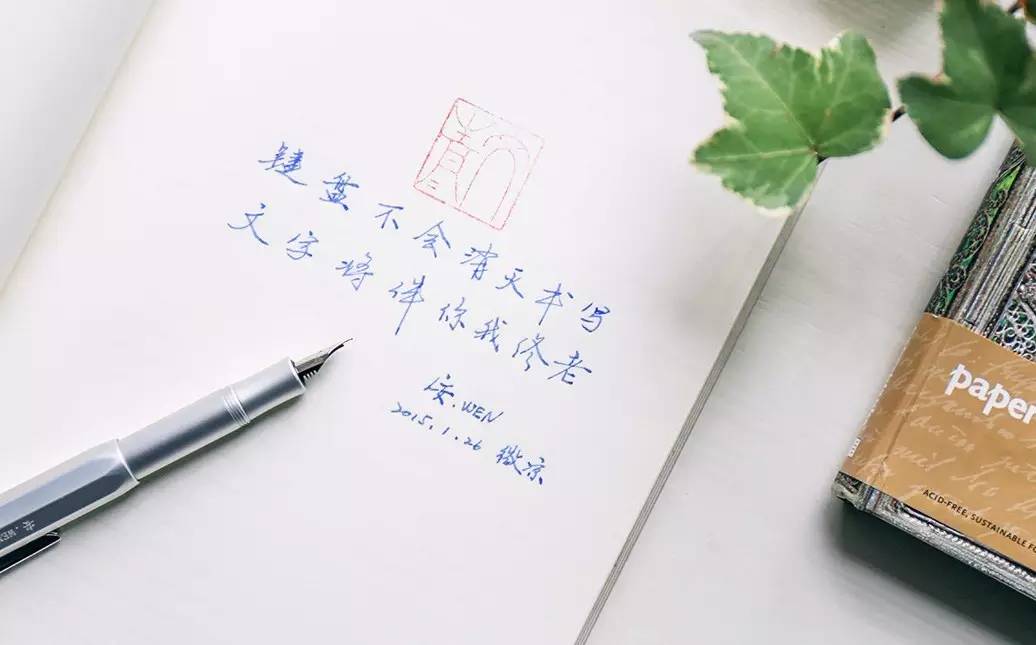 键盘不会消灭书写
文字将伴你我终老
安.WEN
2015.1.26 微凉
paper
ACID-FREE, SUSTAINABLE F